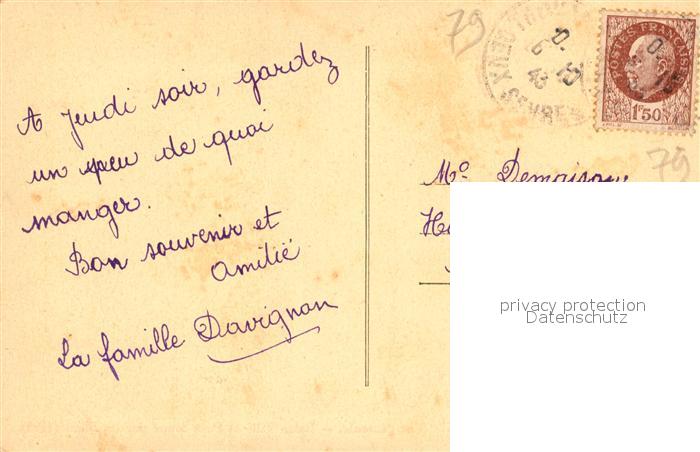 A Jeudi soir, gardez
un peu de quoi
manger.
Bon souvenir et
amitié
La famille Davignon
79
DEUX SEVRES
43
POSTES FRANÇAISES
1F50
79
Mº Demaison
privacy protection
Datenschutz